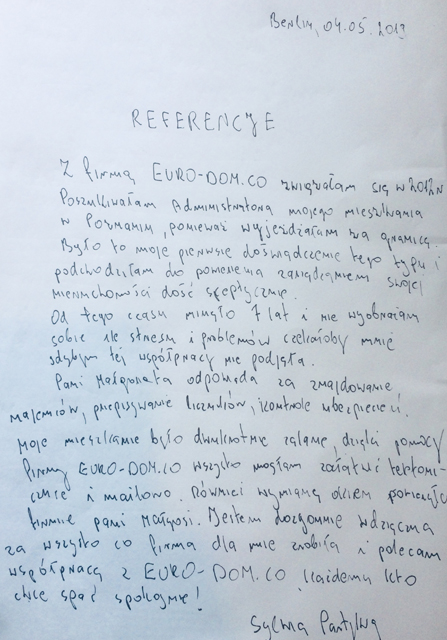 Berlin, 04.05.2019
REFERENCJE
Z firmą EURO-DOM.CO związałam się w 2012r.
Poszukiwałam Administratora mojego mieszkania
w Poznaniu, ponieważ wyjeżdżałam za granicę.
Było to moje pierwsze doświadczenie tego typu i
podchodziłam do powierzenia zarządzaniem swojej
nieruchomości dość sceptycznie.
Od tego czasu minęło 7 lat i nie wyobrażam
sobie ile stresu i problemów czekałoby mnie
gdybym tej współpracy nie podjęła.
Pani Małgorzata odpowiada za znajdowanie
najemców, przepisywanie liczników, kontrole ubezpieczeń.
Moje mieszkanie było dwukrotnie zalane, dzięki pomocy
firmy EURO-DOM.CO wszystko mogłam załatwić telefoni-
cznie i mailowo. Również wymianą okien
firmie pani Małgosi. Jestem dozgonnie wdzięczna
za wszystko co firma dla mnie zrobiła i polecam
współpracę z EURO-DOM.CO każdemu kto
chce spać spokojnie!
Sylwia